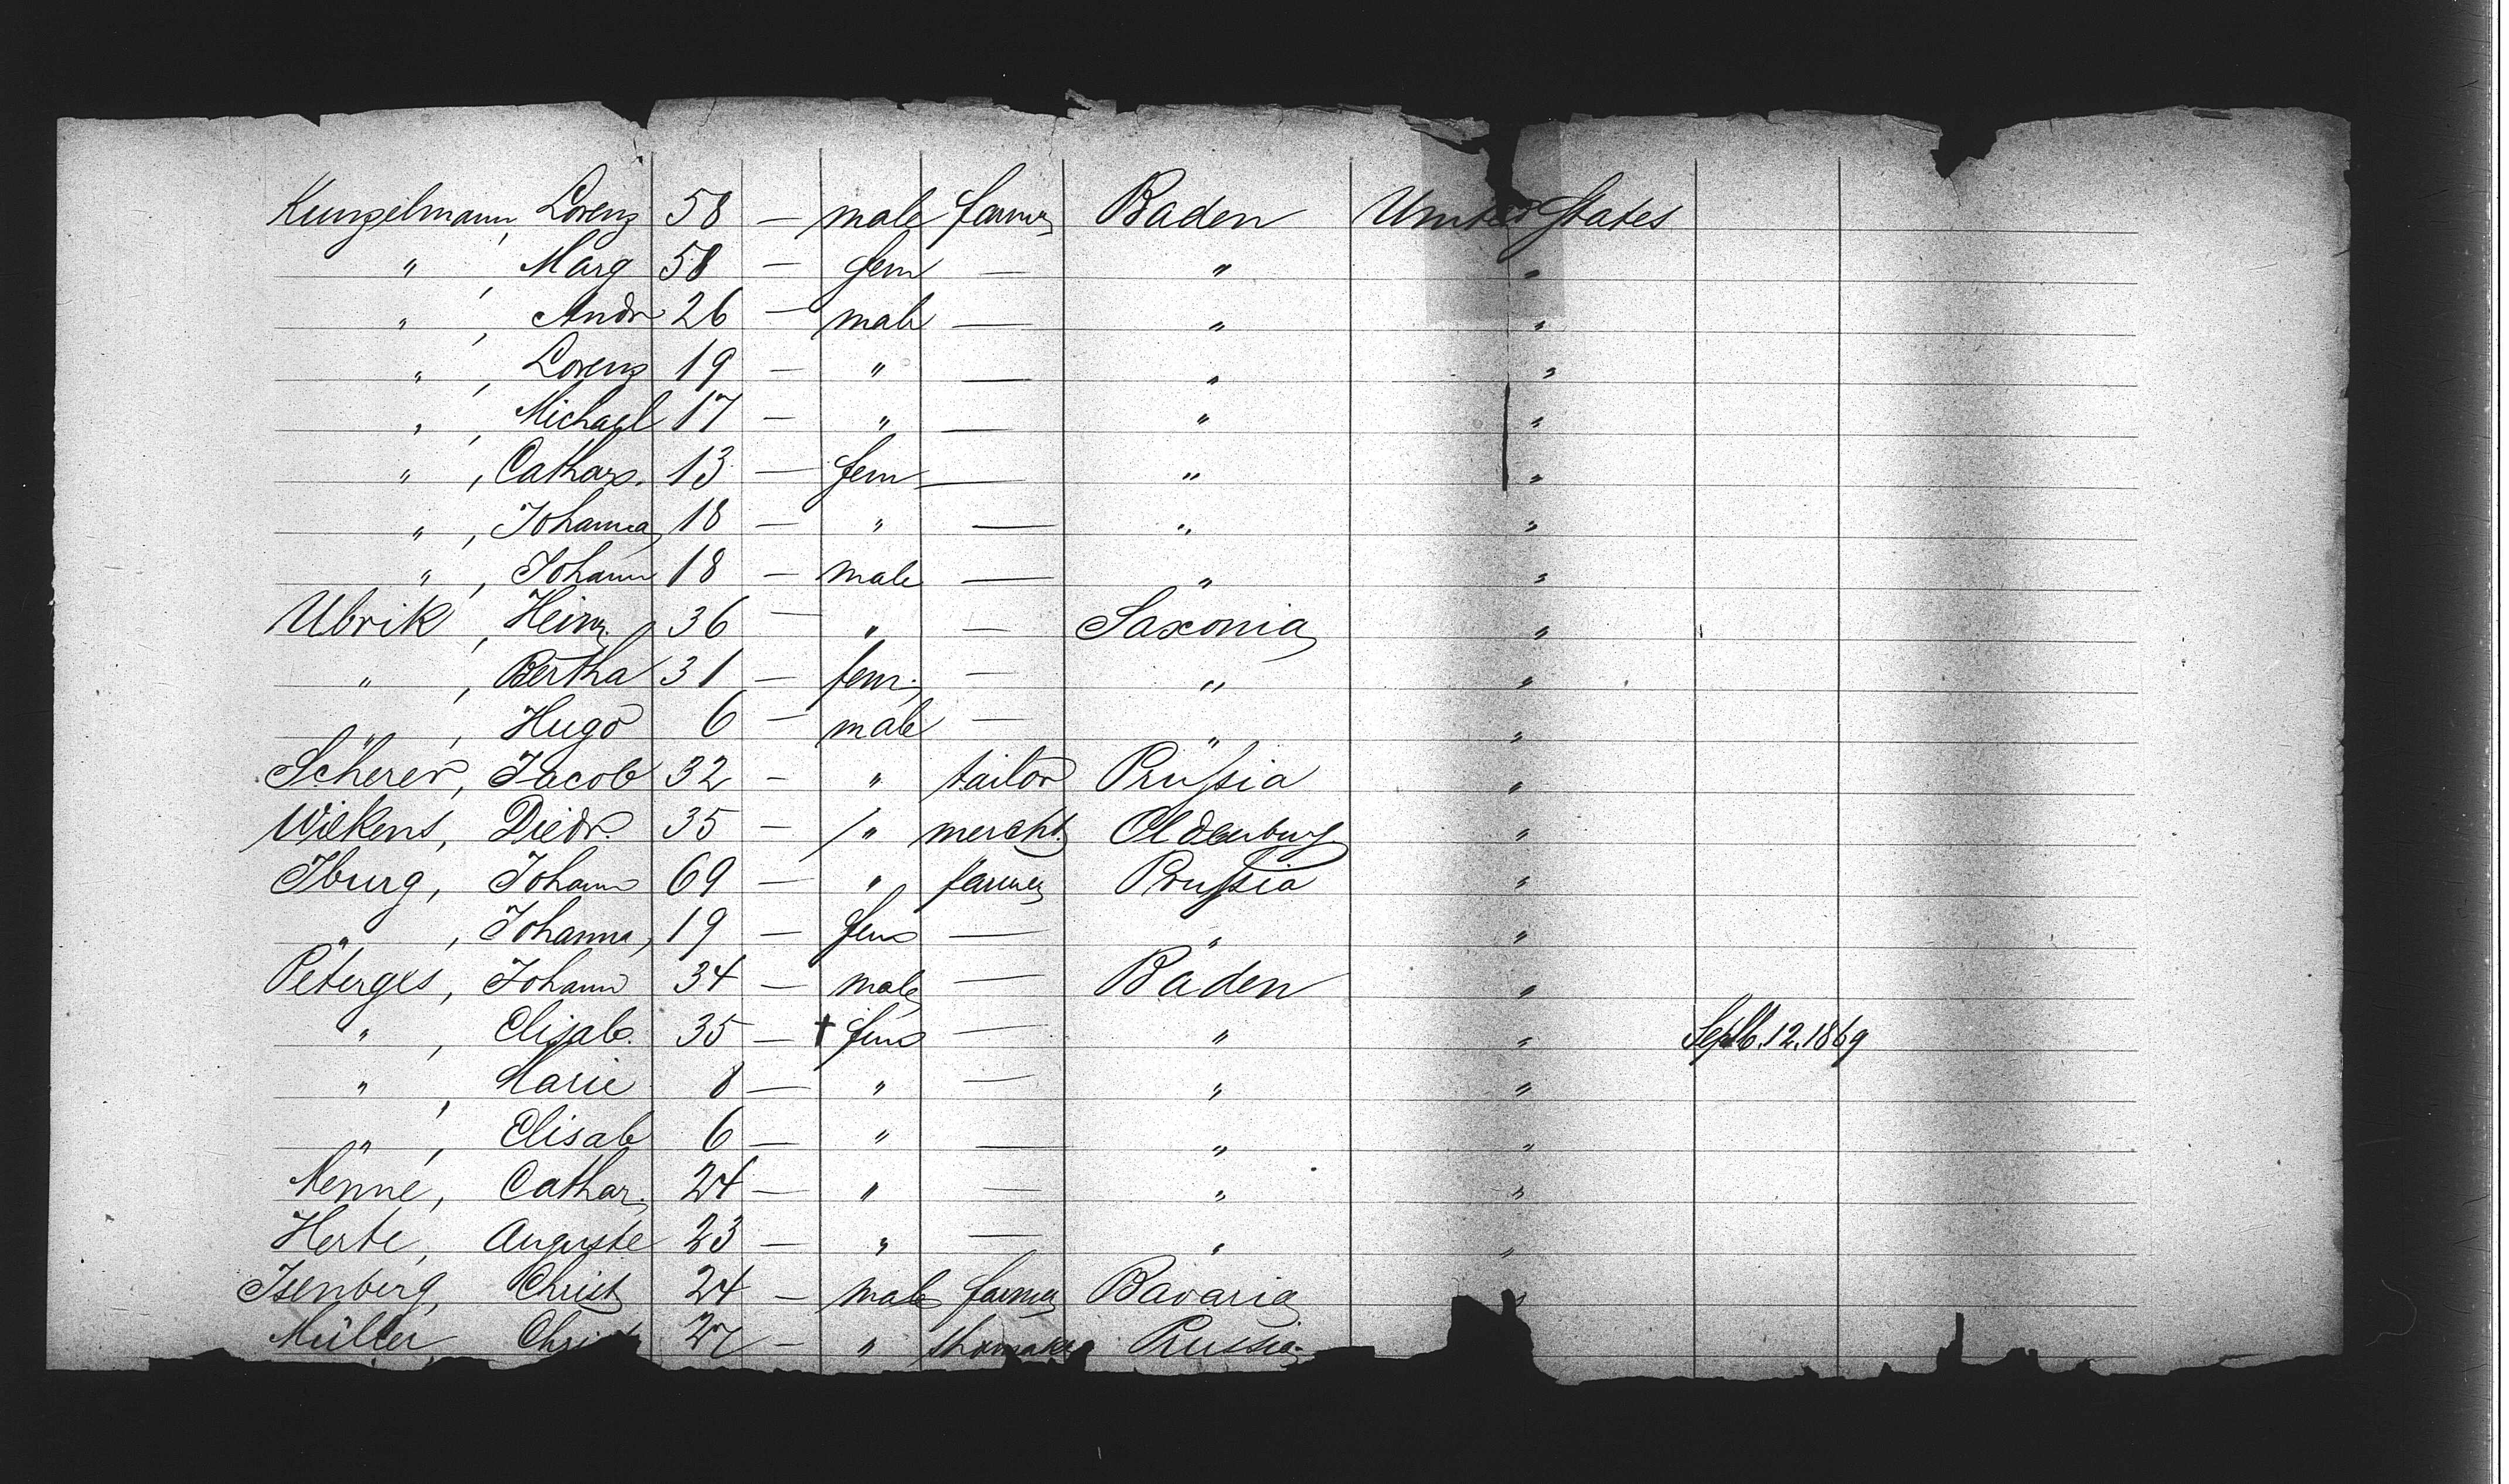 Kunzelmann, Lorenz 58 — male farmer Baden United States
" , Marg 58 — fem — " "
" , Andr 26 — male — " "
" , Lorenz 19 — " — " "
" , Michael 17 — " — " "
" , Cathar. 13 — fem — " "
" , Johanna 18 — " — " "
" , Johann 18 — male — " "
Ubrik, Heinr. 36 — " — Saxonia "
" , Bertha 31 — fem. — " "
" , Hugo 6 — male — " "
Scherer, Jacob 32 — " tailor Prussia "
Wilkens, Diedr. 35 — " mercht. Oldenburg "
Iburg, Johann 69 — " farmer Prussia "
" , Johanna, 19 — fem — " "
Peterges, Johann 34 — male — Baden "
" , Elisab. 35 — † fem — " " Septb. 12. 1869
" , Marie 8 — " — " "
" , Elisab 6 — " — " "
Nenne, Cathar. 24 — " — " "
Herte, Auguste 23 — " — " "
Isenberg, Christ 24 — male farmer Bavaria "
Müller Christ 27 — " shomaker Prussia